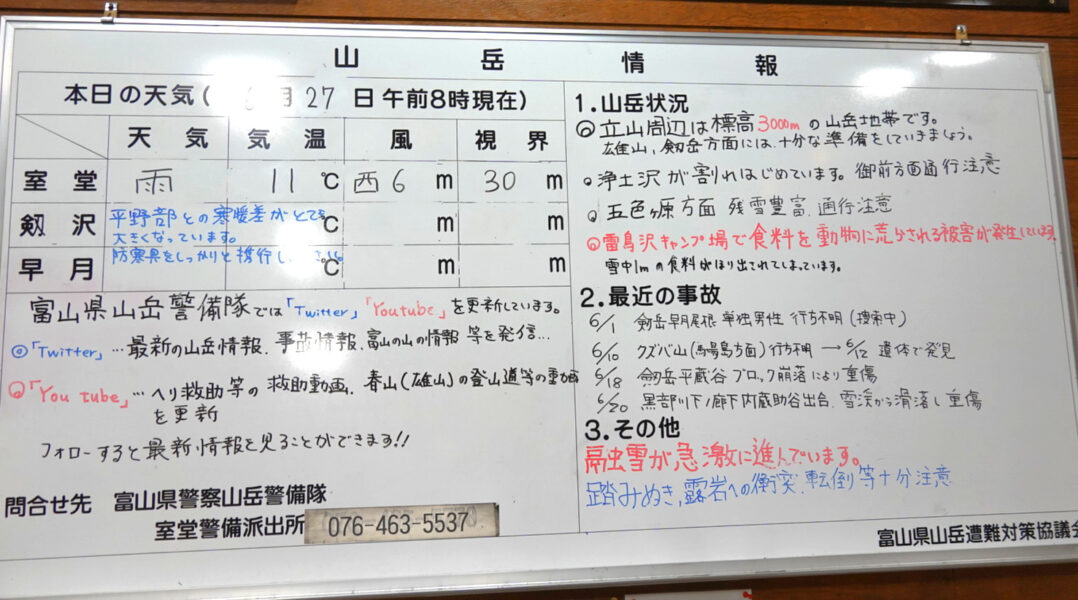 山岳情報
本日の天気( 6月27日午前8時現在)
天気 気温 風 視界
室堂 雨 11℃ 西6m 30m
剱沢 ℃ m m
早月 ℃ m m
平野部との寒暖差がとても
大きくなっています。
防寒具をしっかりと携行し
富山県山岳警備隊では「Twitter」「Youtube」を更新しています。
◎「Twitter」…最新の山岳情報、事故情報、富山の山の情報 等を発信…
◎「You tube」…ヘリ救助等の救助動画、春山(雄山)の登山道等の動画
を更新
フォローすると最新情報を見ることができます!!
問合せ先 富山県警察山岳警備隊
室堂警備派出所 076-463-5537
1.山岳状況
◎立山周辺は標高3000mの山岳地帯です。
雄山、剱岳方面には、十分な準備をしていきましょう。
○浄土沢が割れはじめています。御前方面通行注意
○五色ヶ原方面 残雪豊富、通行注意
◎雷鳥沢キャンプ場で食料を動物に荒らされる被害が発生しています。
雪中1mの食料がほり出されてしまっています。
2.最近の事故
6/1 剱岳早月尾根 単独男性 行方不明(捜索中)
6/10 クズバ山(馬場島方面)行方不明→6/12 遺体で発見
6/18 剱岳平蔵谷 ブロック崩落により重傷
6/20 黒部川下ノ廊下内蔵助谷出合、雪渓から滑落し重傷
3.その他
融雪が急激に進んでいます。
踏みぬき、露岩への衝突、転倒等十分注意
富山県山岳遭難対策協議会